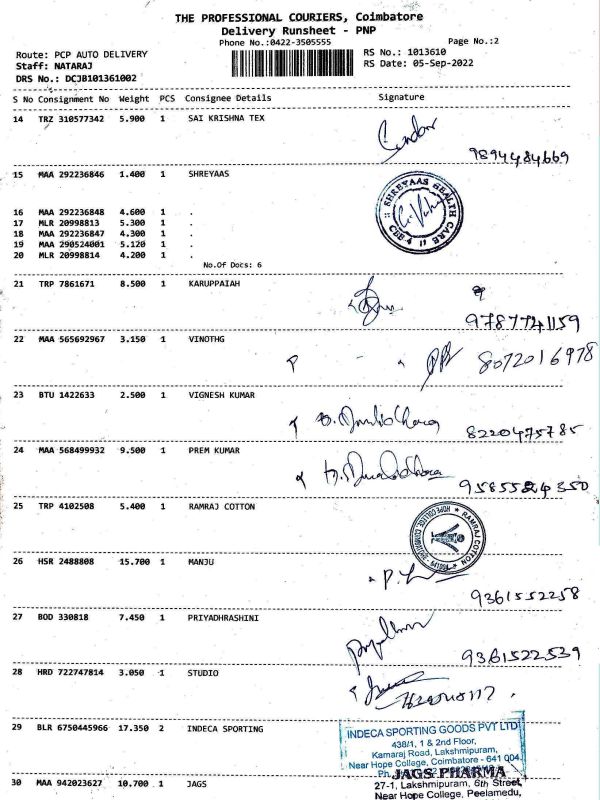 THE PROFESSIONAL COURIERS, Coimbatore
Delivery Runsheet - PNP
Phone No.:0422-3505555
Page No.:2
Route: PCP AUTO DELIVERY
RS No.: 1013610
Staff: NATARAJ
RS Date: 05-Sep-2022
DRS No.: DCJB101361002
S No Consignment No Weight PCS Consignee Details Signature
14 TRZ 310577342 5.900 1 SAI KRISHNA TEX
9894484669
15 MAA 292236846 1.400 1 SHREYAAS
SHREYAAS HEALTH CARE
CBE-4
16 MAA 292236848 4.600 1 .
17 MLR 20998813 5.300 1 .
18 MAA 292236847 4.300 1 .
19 MAA 290524001 5.120 1 .
20 MLR 20998814 4.200 1 .
No.Of Docs: 6
21 TRP 7861671 8.500 1 KARUPPAIAH
9787741159
22 MAA 565692967 3.150 1 VINOTHG
8072016978
23 BTU 1422633 2.500 1 VIGNESH KUMAR
8220475785
24 MAA 568499932 9.500 1 PREM KUMAR
9585524350
25 TRP 4102508 5.400 1 RAMRAJ COTTON
RAMRAJ COTTON
HOPE COLLEGE, COIMBATORE
26 HSR 2488808 15.700 1 MANJU
9361552258
27 BOD 330818 7.450 1 PRIYADHRASHINI
9361522539
28 HRD 722747814 3.050 1 STUDIO
29 BLR 6750445966 17.350 2 INDECA SPORTING
INDECA SPORTING GOODS PVT LTD
438/1, 1 & 2nd Floor,
Kamaraj Road, Lakshmipuram,
Near Hope College, Coimbatore - 641 004.
Ph.
30 MAA 942023627 10.700 1 JAGS
JAGS PHARMA
27-1, Lakshmipuram, 6th Street,
Near Hope College, Peelamedu,